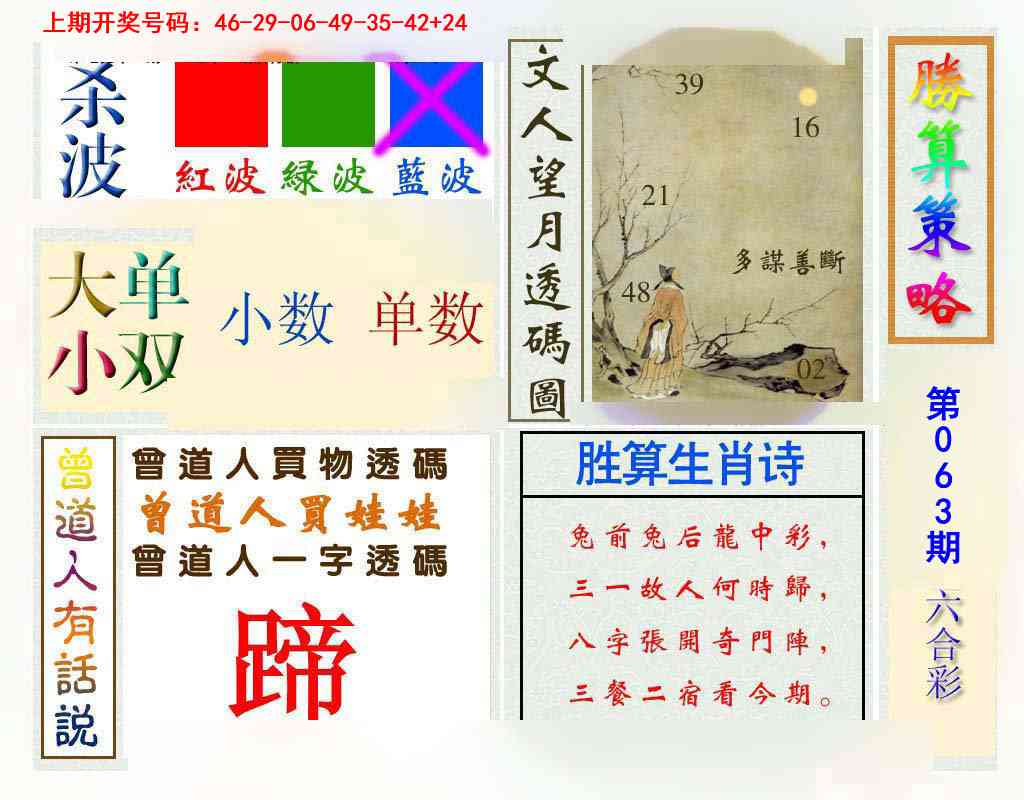 上期开奖号码：46-29-06-49-35-42+24
杀波
紅波 绿波 藍波
大单
小双
小数 单数
文人望月透碼圖
39
16
21
多謀善斷
48
02
勝算策略
第063期
六合彩
曾道人有話説
曾道人買物透碼
曾道人買娃娃
曾道人一字透碼
蹄
胜算生肖诗
兔前兔后龍中彩，
三一故人何時歸，
八字張開奇門陣，
三餐二宿看今期。